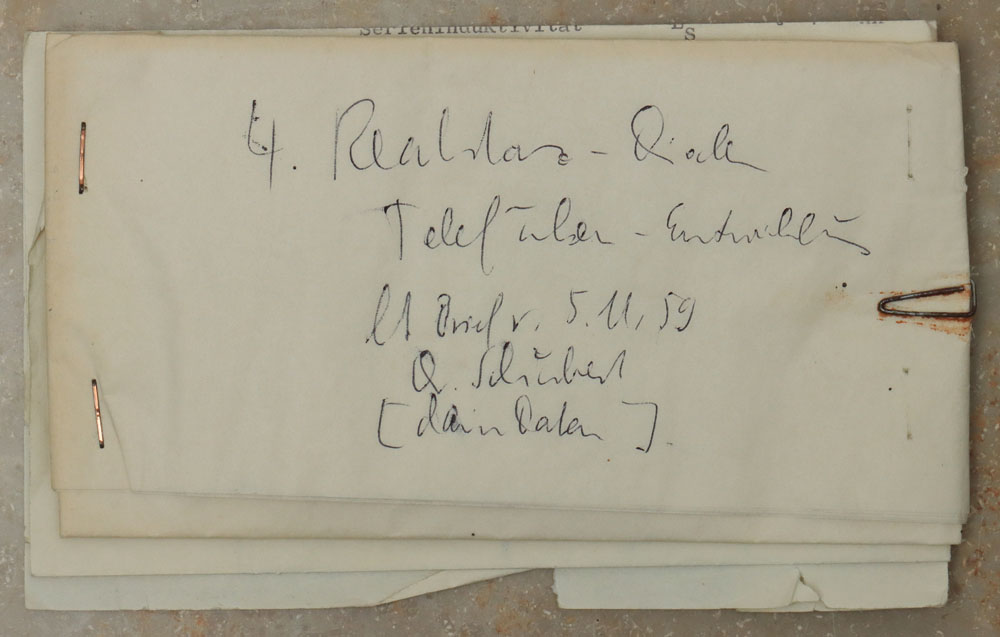 Serieninduktivität L
S
4. Reaktanz-Dioden
Telefunken-Entwicklung
lt Brief v. 5.11.59
Schubert
[darin Daten].